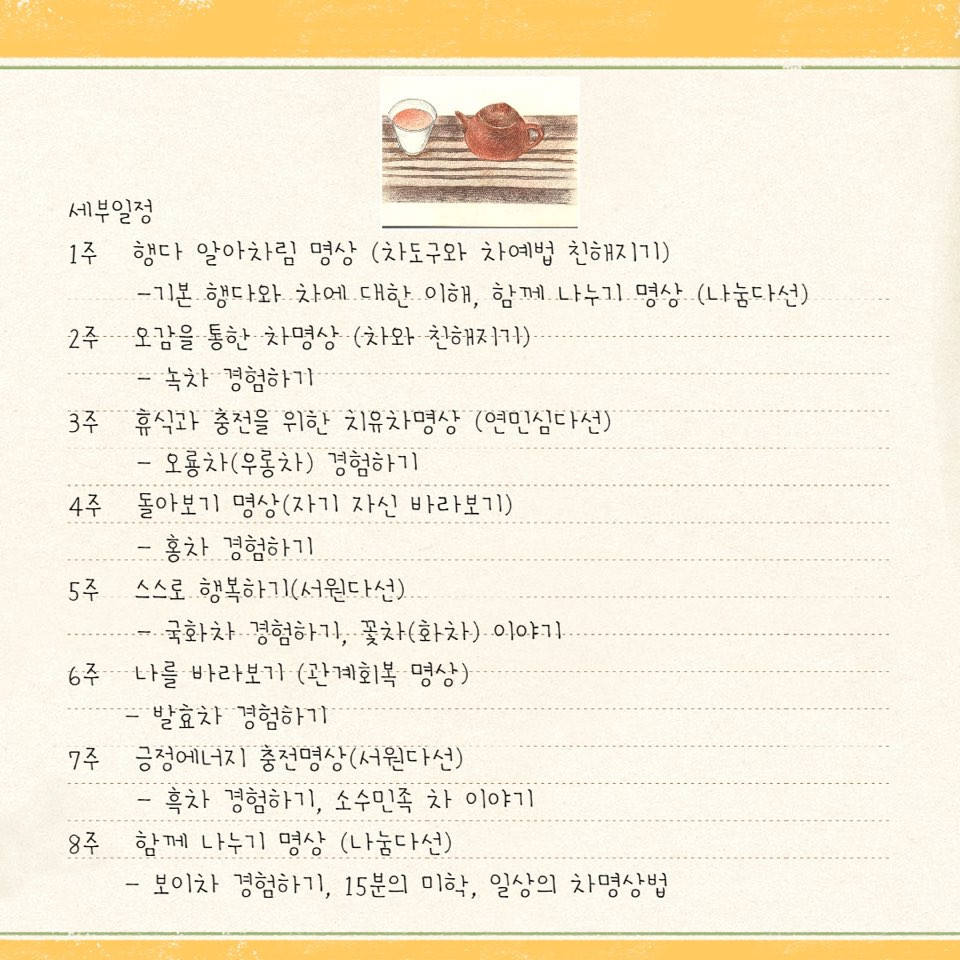 세부일정
1주 행다 알아차림 명상 (차도구와 차예법 친해지기)
-기본 행다와 차에 대한 이해, 함께 나누기 명상 (나눔다선)
2주 오감을 통한 차명상 (차와 친해지기)
- 녹차 경험하기
3주 휴식과 충전을 위한 치유차명상 (연민심다선)
- 오룡차(우롱차) 경험하기
4주 돌아보기 명상(자기 자신 바라보기)
- 홍차 경험하기
5주 스스로 행복하기(서원다선)
- 국화차 경험하기, 꽃차(화차) 이야기
6주 나를 바라보기 (관계회복 명상)
- 발효차 경험하기
7주 긍정에너지 충전명상(서원다선)
- 흑차 경험하기, 소수민족 차 이야기
8주 함께 나누기 명상 (나눔다선)
- 보이차 경험하기, 15분의 미학, 일상의 차명상법